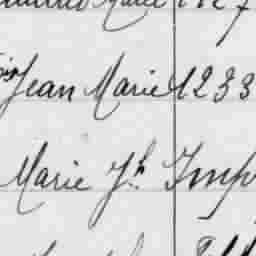 Marie 1127
Jean Marie 1233
Marie Jh Imp